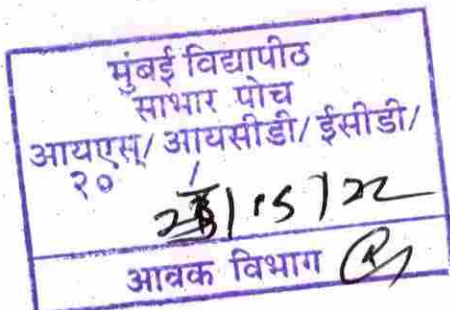 मुंबई विद्यापीठ
साभार पोच
आयएस्/ आयसीडी/ ईसीडी/
२०
/22
आवक विभाग